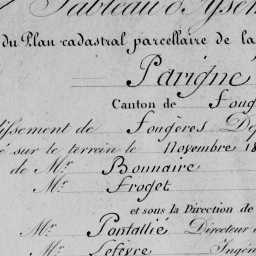 Tableau d'Assem
du Plan cadastral parcellaire de la
Parigné
Canton de Foug
issement de Fougères Dé
é sur le terrein le Novembre 18
de Mr. Bonnaire
Mr. Froget
et sous la Direction de
Mr. Pontallié Directeur
Mr. Lefévre Ingén